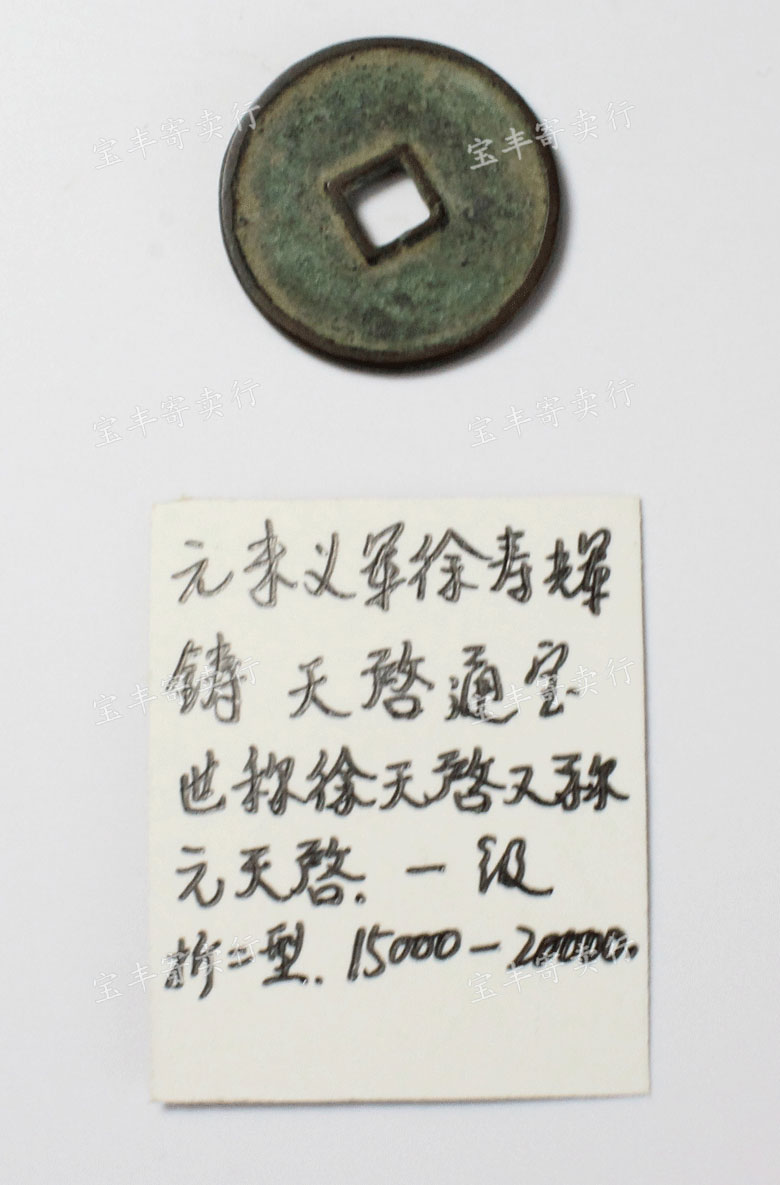 宝丰寄卖行 宝丰寄卖行
宝丰寄卖行 宝丰寄卖行
元末义军徐寿辉
铸 天啓通宝
宝丰寄卖行 宝丰寄卖行
世称徐天啓又称
元天啓.一级
折二型.15000-20000.
宝丰寄卖行 宝丰寄卖行